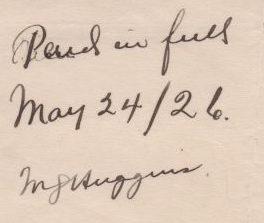 Paid in full
May 24/26.
M J Huggins.